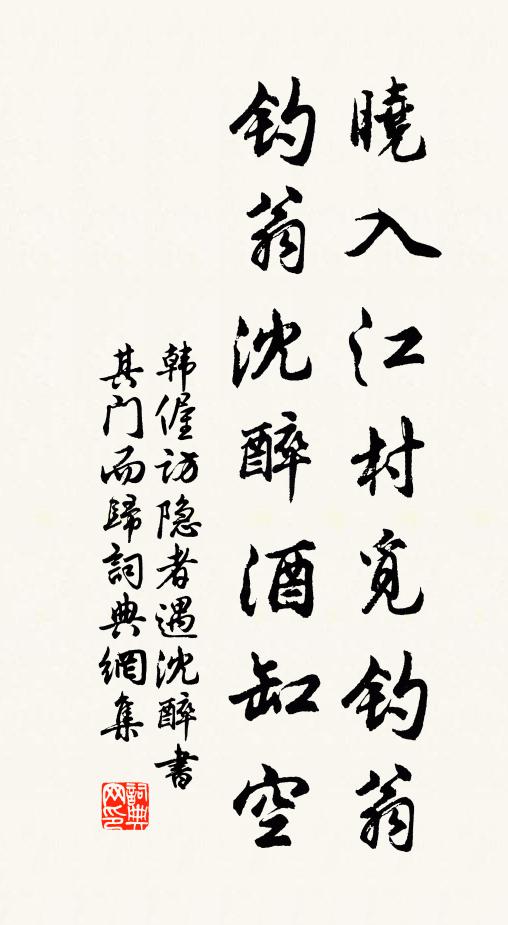 曉入江村覓钓翁
钓翁沈醉酒缸空
韩偓访隐者遇沈醉書
其门而歸詞典網集
詞典
网印